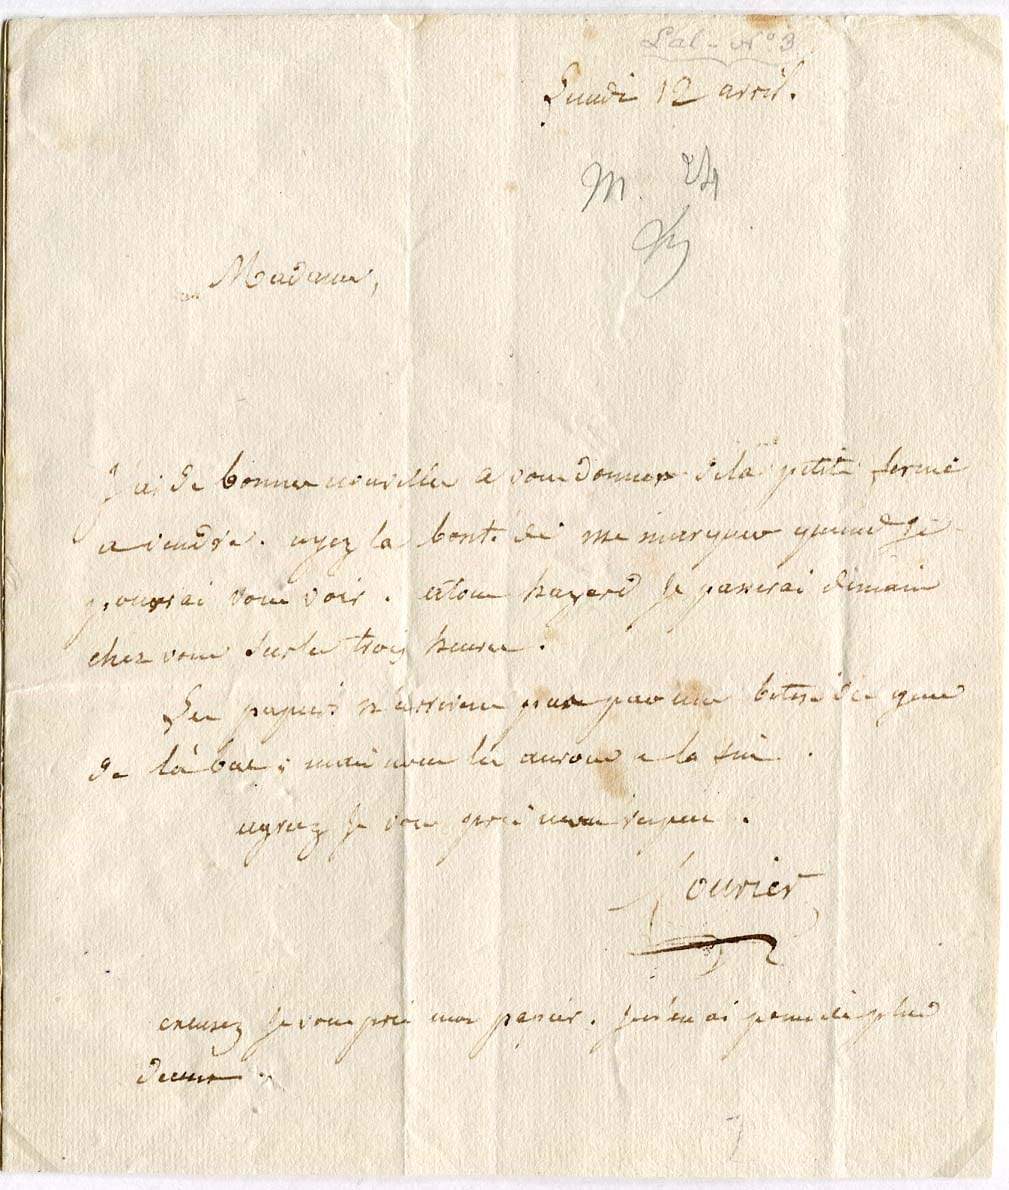 Lal - N° 3
Lundi 12 avril.
M. 24
Madame,
J'ai de bonnes nouvelles a vous donner de la petite ferme
a vendre. ayez la bonté de me marquer quand je
pourrai vous voir. a tout hazard je passerai demain
chez vous sur les trois heures.
Les papiers n'arrivent pas par une betise de gens
de là bas; mais nous les aurons a la fin.
agreez je vous prie mon respect.
Courier
excusez je vous prie mon papier. je n'en ai point de plus
decent.